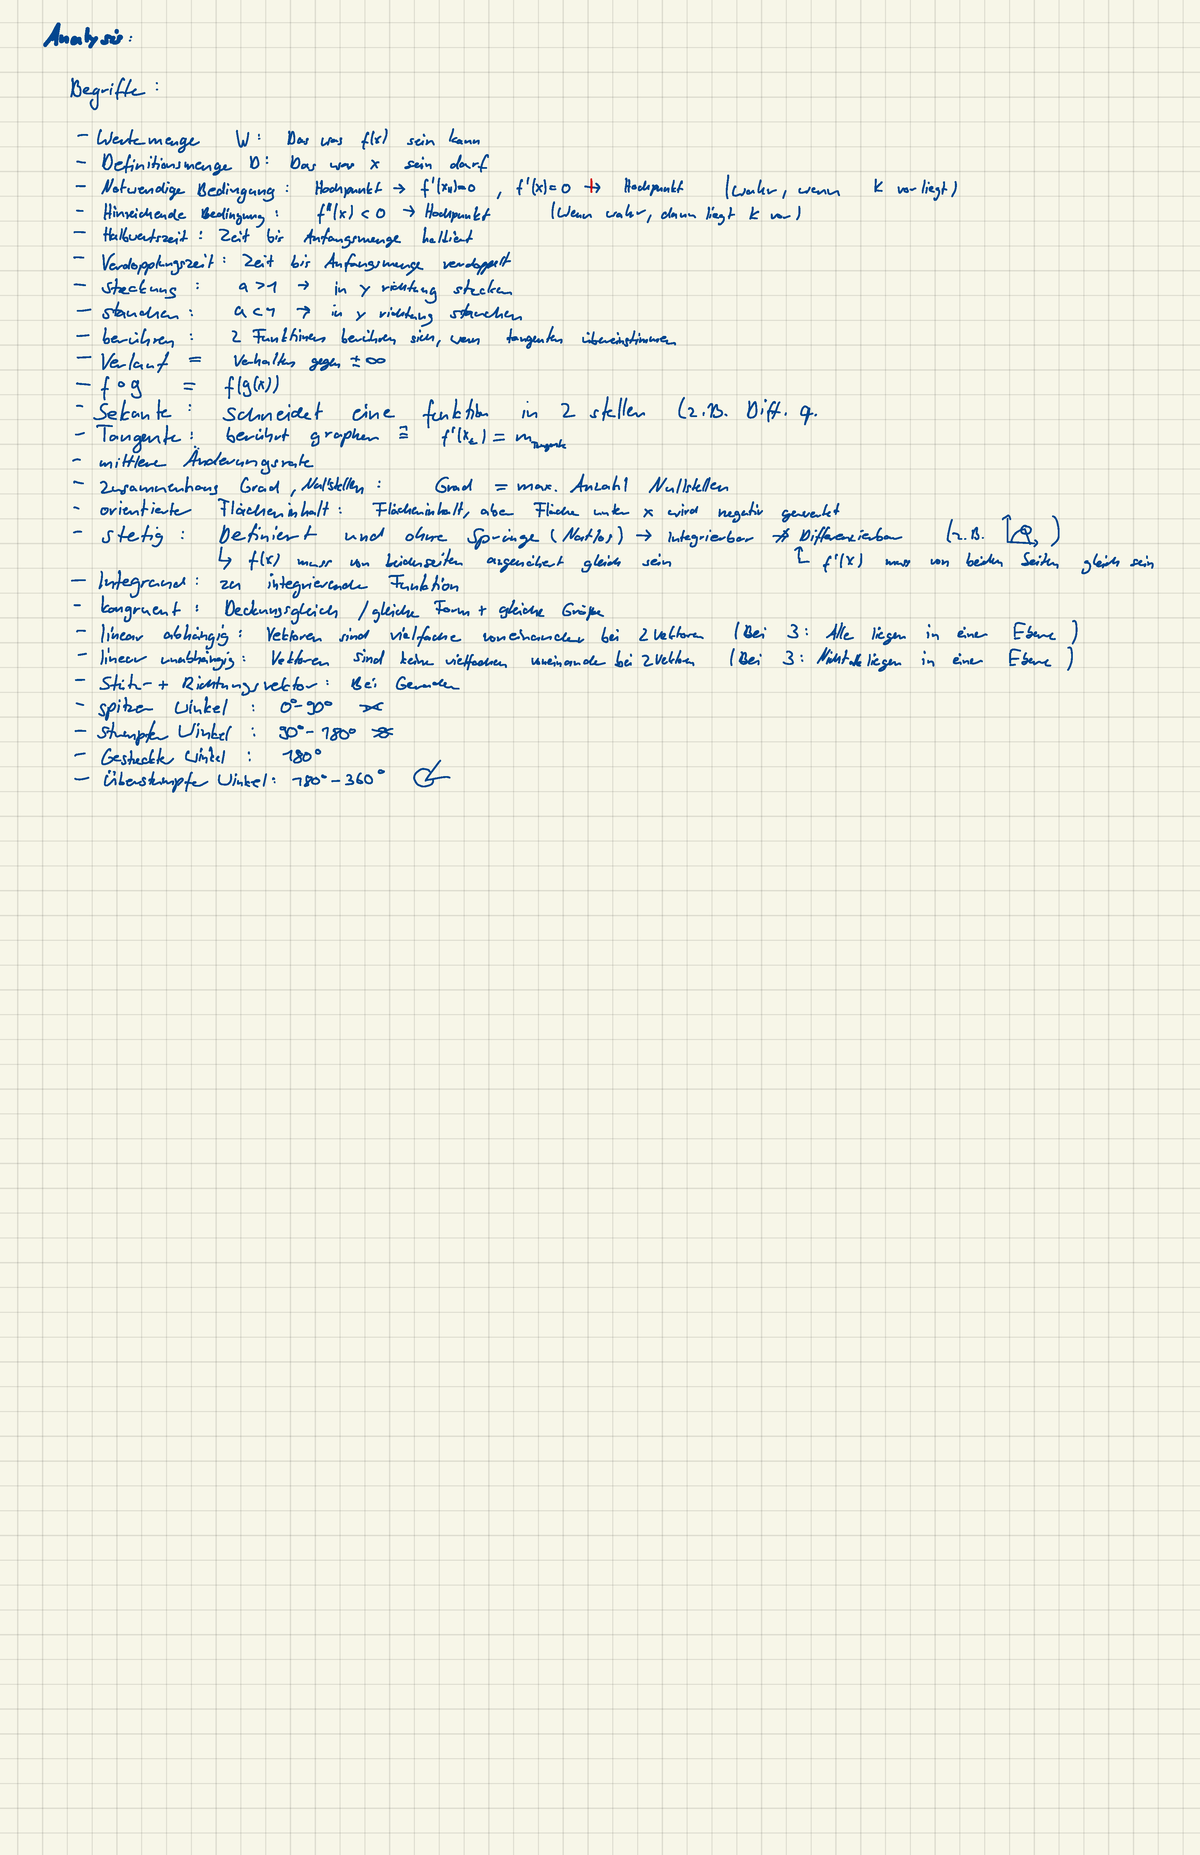 Analysis:
Begriffe:
- Wertemenge W: Das was f(x) sein kann
- Definitionsmenge D: Das was x sein darf
- Notwendige Bedingung: Hochpunkt → f'(x_H)=0 , f'(x)=0 ↛ Hochpunkt (wahr, wenn K vorliegt)
- Hinreichende Bedingung: f''(x) < 0 → Hochpunkt (Wenn wahr, dann liegt K vor)
- Halbwertszeit: Zeit bis Anfangsmenge halbiert
- Verdopplungszeit: Zeit bis Anfangsmenge verdoppelt
- Streckung: a > 1 → in y richtung strecken
- stauchen: a < 1 → in y richtung stauchen
- berühren: 2 Funktionen berühren sich, wenn tangenten übereinstimmen
- Verlauf = Verhalten gegen ±∞
- f∘g = f(g(x))
- Sekante: schneidet eine funktion in 2 stellen (z.B. Diff. q.
- Tangente: berührt graphen ≙ f'(x_t) = m_Tangente
- mittlere Änderungsrate
- Zusammenhang Grad, Nullstellen: Grad = max. Anzahl Nullstellen
- orientierte Flächeninhalt: Flächeninhalt, aber Fläche unter x wird negativ gewertet
- stetig: Definiert und ohne Sprünge → Integrierbar ⇏ Differenzierbar (z.B. )
↳ f(x) muss von beidenseiten angenähert gleich sein f'(x) muss von beiden Seiten gleich sein
- Integrand: zu integrierende Funktion
- kongruent: Deckungsgleich / gleiche Form + gleiche Größe
- linear abhängig: Vektoren sind vielfache voneinander bei 2 Vektoren (Bei 3: Alle liegen in einer Ebene)
- linear unabhängig: Vektoren sind keine vielfachen voneinander bei 2 Vektoren (Bei 3: Nicht alle liegen in einer Ebene)
- Stütz- + Richtungsvektor: Bei Geraden
- spitzer Winkel: 0°-90°
- stumpfer Winkel: 90°-180°
- Gestreckte Winkel: 180°
- Überstumpfe Winkel: 180°-360°